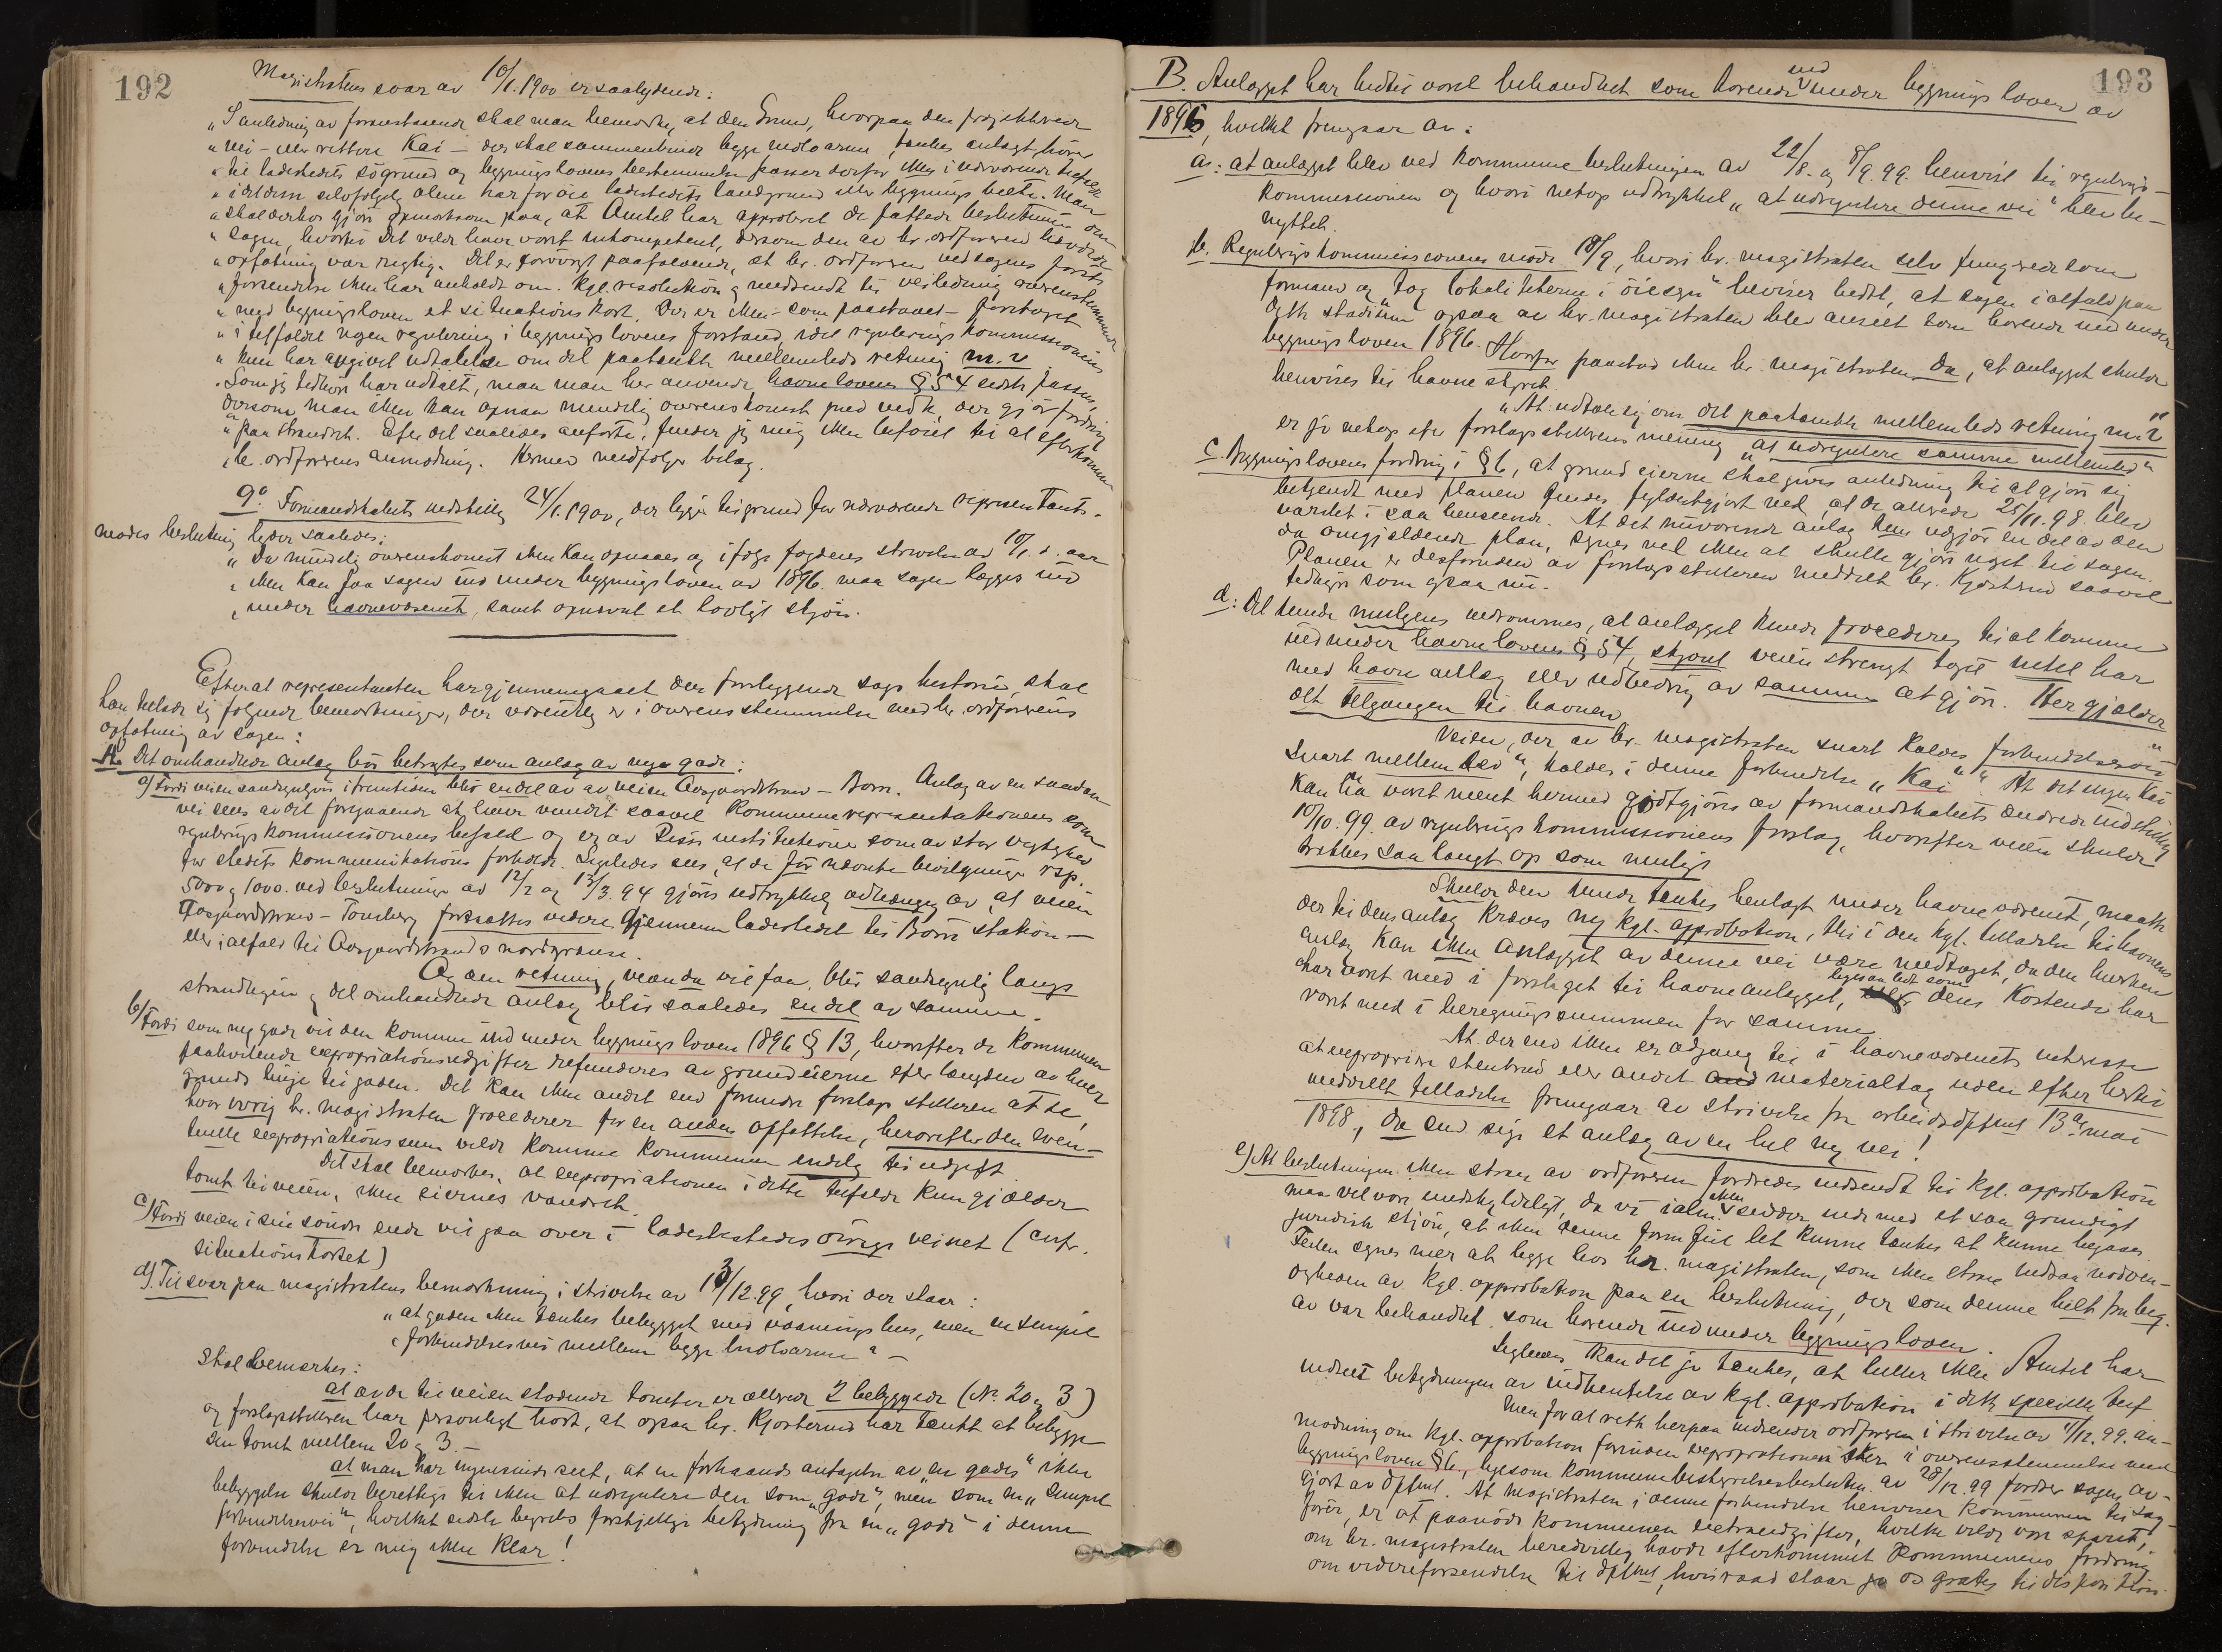 192
Magistratens svar av 10/1.1900 er saalydende:
"I anledning av foranstaaende skal man bemerke, at den Grund, hvorpaa den projekterede
"vei – eller rettere Kai – der skal sammenbinde begge moloarme, tænkes anlagt hører
"til ladestedets søgrund og bygningslovens bestemmelser passer derfor ikke i nærværende tilfælde
"idet denne selvfølgelig alene har for øie ladestedets landgrund eller bygnings belte. Man
"skal derhos gjøre opmerksom paa, at Amtet har approberet de fattede beslutninger om
"sagen, hvortil det vilde have været inkompetent, dersom den av hr. ordføreren hævdede
"opfatning var rigtig. Det er forøvrigt paafaldende, at hr. ordføreren ved sagens første
"forsendelse ikke har anholdt om kgl. resolution og medsendt til veiledning overensstemmende
"med bygningsloven et situationskort. Der er ikke – som paastaaet – foretaget
"i tilfældet nogen regulering i bygningslovens forstand, idet reguleringskommissionen
"kun har avgivet udtalelse om det paatænkte mellemleds retning m. v.
"Som jeg tidligere har udtalt, maa man her anvende havnelovens § 54 sidste passus,
"dersom man ikke kan opnaa mindelig overenskomst med vedk. der gjør fordring
"paa strandret. Efter det saaledes anførte, finder jeg mig ikke beføiet til at efterkomme
"hr. ordførerens anmodning. Hermed medfølger bilag.
9º. Formandskabets indstilling 24/1.1900, der ligger til grund for nærværende representant-
mødes beslutning lyder saaledes:
"Da mindelig overenskomst ikke kan opnaaes og ifølge fogdens skrivelse av 10/1 d. aar
"ikke kan faa sagen ind under bygningsloven av 1896 maa sagen lægges ind
"under havnevæsenet, samt opnævnt et lovligt skjøn.
Efterat representanten har gjennemgaaet den foreliggende sags historie, skal
han tillade sig følgende bemerkninger, der væsentlig er i overensstemmelse med hr. ordførerens
opfatning av sagen:
A. Det omhandlede anlæg bør betragtes som anlæg av nye gade:
a) Fordi veien sandsynligvis i fremtiden blir endel av av veien Aasgaardstrand – Borre. Anlæg av en saadan
vei sees av det foregaaende at have vundet saavel Kommunerepresentationens som
reguleringskommissionens bifald og er av disse institutioner som av stor vigtighed
for stedets kommunikations forholde. Ligeledes sees, at de før nævnte bevilgninger resp.
5000 og 1000. ved beslutninger av 12/2 og 13/3.94 gjøres udtrykkelig avhængig av, at veien
Aasgaardstrand – Tønsberg fortsættes videre gjennem ladestedet til Borre station –
eller i alfald til Aasgaardstrands nordgrænse.
Og den retning, veien da vil faa, blir sandsynlig langs
strandlinjen og det omhandlede anlæg blir saaledes en del av samme.
b) Fordi som ny gade vil den komme ind under bygningsloven 1896 § 13, hvorefter de Kommunen
paahvilende expropriationsudgifter refunderes av grundeierne efter længden av hver
grunds linje til gaden. Det kan ikke andet end forundre forslagsstilleren at se,
hvor ivrig hr. magistraten procederer for en anden opfattelse, hvorefter den even-
tuelle expropriationssum vilde komme kommunen endelig til udgift
Det skal bemerkes, at expropriationen i dette tilfælde kun gjælder
tomt til veien, ikke eiernes vandret.
c) Fordi veien i sin søndre ende vil gaa over i ladestedets øvrige veinet (cnfr.
situationskortet)
d). Til svar paa magistratens bemerkning i skrivelse av 13/12.99, hvori der staar:
"at gaden ikke tænkes bebygget med vaaningshus, men en simpel
"forbindelsesvei mellem begge moloarme" –
skal bemerkes:
at av de til veien stødende tomter er allerede 2 bebyggede (Nr. 20 og 3)
og forslagsstilleren har personligt hørt, at ogsaa hr. Kjøsterud har tænkt at bebygge
sin tomt mellem 20 og 3. –
at man har ingensinde seet, at en forhaands antagelse av "en gades" ikke
bebyggelse skulde berettige til ikke at udregulere den som "gade", men som en "simpel
forbindelsesvei", hvilket sidste begrebs forskjellige betydning fra en "gade" i denne
forbindelse er mig ikke klar!
193
B. Anlægget har hidtil været behandlet som hørende ind under bygnings loven av
1896, hvilket fremgaar av:
a: at anlægget blev ved Kommune beslutningen av 22/8. og 8/9.99. henvist til regulerings-
kommissionen og hvori netop udtrykket "at udregulere denne vei" blev be-
nyttet.
b. Reguleringskommissionens møde 18/9, hvori hr. magistraten selv fungerede som
formand og tog lokaliteterne i "øiesyn" beviser bedst, at sagen i alfald paa
dette stadium ogsaa av hr. magistraten blev anseet som hørende ind under
bygningsloven 1896. Hvorfor paastod ikke hr. magistraten da, at anlægget skulde
henvises til havnestyret.
"At udtale sig om det paatænkte mellemleds retning m. v."
er jo netop efter forslagsstillerens mening "at udregulere samme mellemled"
c. Bygningslovens fordring i § 6, at grundeierne skal gives anledning til at gjøre sig
bekjendt med planen findes fyldestgjort ved, at de allerede 25/11.98 blev
varslet i saa henseende. At det nuværende anlæg kun udgjør en del av den
da omgjældende plan, synes vel ikke at skulle gjøre noget til sagen.
Planen er desforuden av forslagsstilleren meddelt hr. Kjøsterud saavel
tidligere som ogsaa nu.
d: Det kunde muligens indrømmes, at anlægget kunde procederes til at komme
ind under havnelovens § 54, skjønt veien strengt taget intet har
med havneanlæg eller udbedring av samme at gjøre. Her gjælder
det tilgangen til havnen.
Veien, der av hr. magistraten snart kaldes "forbindelsesvei"
snart "mellemled", kaldes i denne forbindelse "Kai". At det ingen Kai
kan ha været ment hermed godtgjøres av formandskabets ændrede indstilling
10/10.99. av reguleringskommissionens forslag, hvorefter veien skulde
trækkes saa langt op som muligt
Skulde den kunde tænkes henlagt under havnevæsenet, maatte
der til dens anlæg kræves ny kgl. approbation, thi i den kgl. tilladelse til havnens
anlæg kan ikke anlægget av denne vei være medtaget, da den hverken
har været med i forslaget til havneanlægget, ligesaa lidt som dens kostende har
været med i beregningssummen for samme
At der end ikke er adgang til i havnevæsenets interesse
at expropriere stenbrud eller andet materialtag uden efter hertil
meddelt tilladelse fremgaar av skrivelse fra arbeidsdptmt 13de mai
1898, da end sige et anlæg av en hel ny vei!
e) At beslutningen ikke strax av ordføreren fordredes indsendt til kgl. approbation
maa vel være undskyldeligt, da vi i alm. ikke sidder inde med et saa grundigt
juridisk skjøn, at ikke denne formfeil let kunne tænkes at kunne begaaes
Feilen synes mer at ligge hos hr. magistraten, som ikke strax indsaa nødven-
digheden av kgl. approbation paa en beslutning, der som denne helt fra beg.
av var behandlet som hørende ind under bygningsloven.
Ligeledes kan det jo tænkes, at heller ikke Amtet har
indseet betydningen av indhentelse av kgl. approbation i dette specielle tilf
Men for at rette herpaa indsender ordføreren i skrivelse av 4/12.99. an-
modning om kgl. approbation forinden expropriationen sker i overensstemmelse med
bygningsloven § 6, ligesom kommunebestyrelsesbeslutn. av 28/12.99 fordrer sagen av-
gjort av dptmt. At magistraten i denne forbindelse henviser kommunen til sag-
fører, er at paanøde kommunen extraudgifter, hvilke vilde være sparet,
om hr. magistraten beredvillig havde efterkommet Kommunens fordring
om videreforsendelse til dptmt, hvis raad staar jo os gratis til disposition.